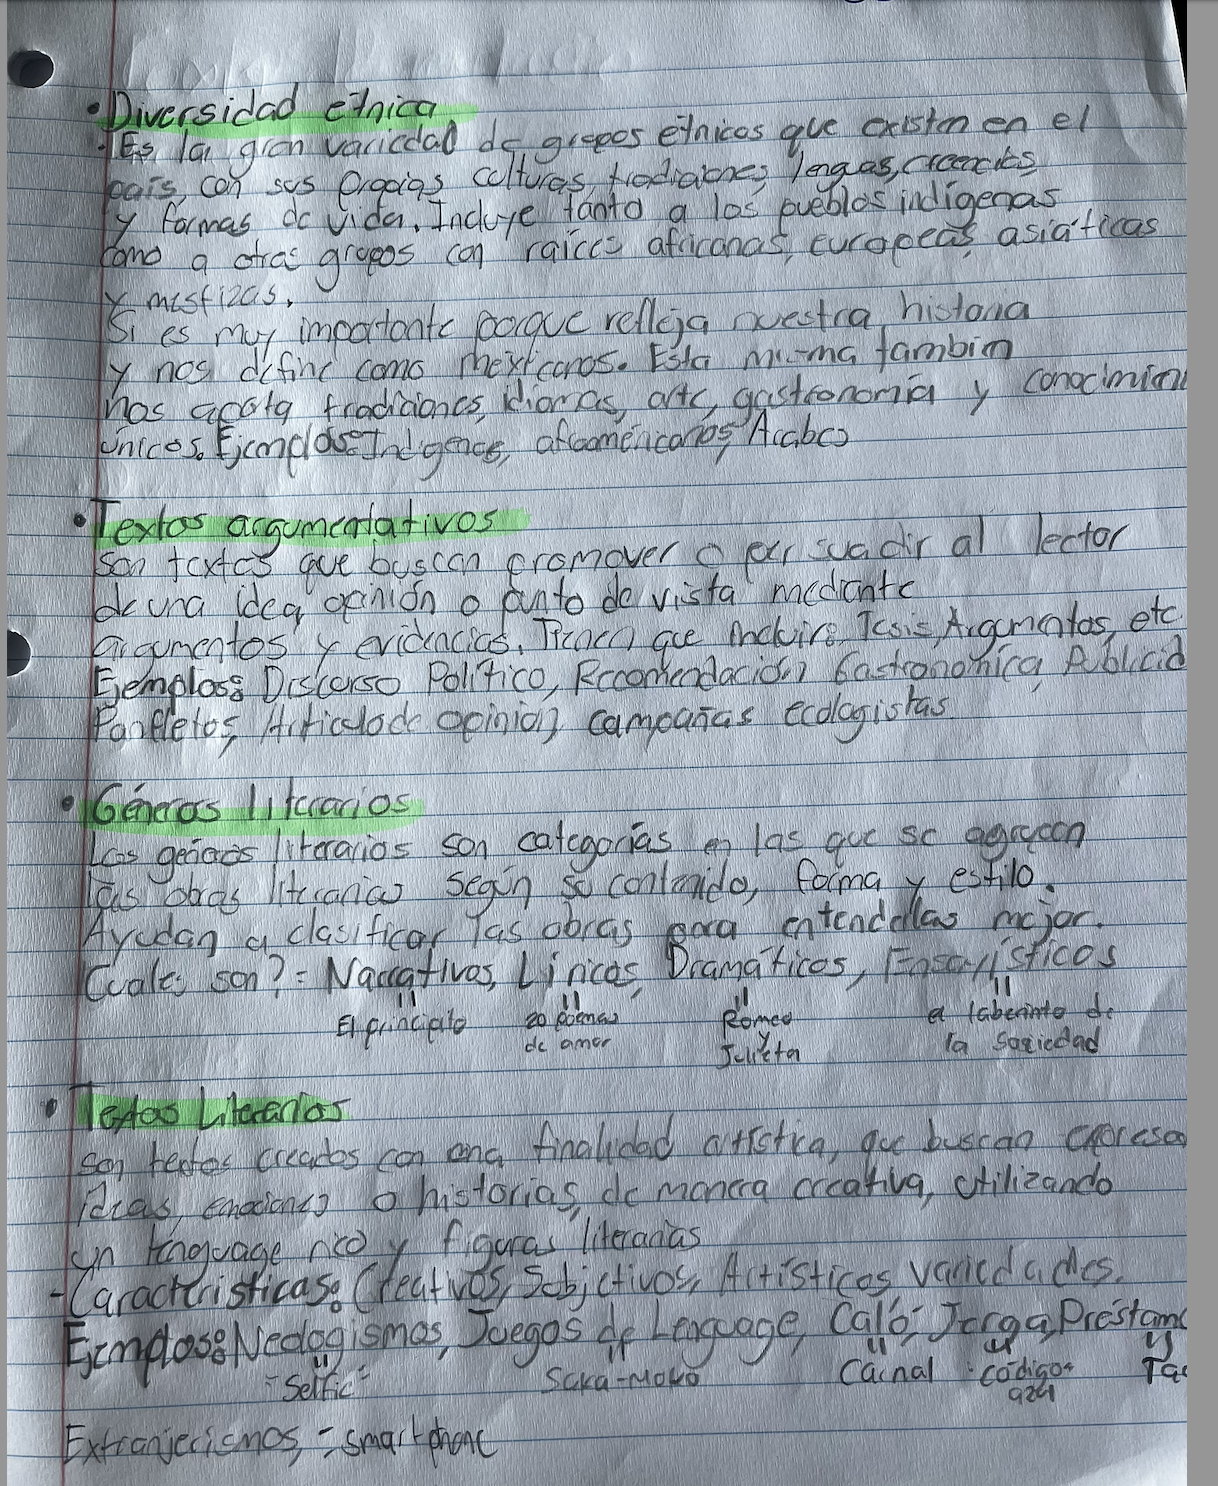 • Diversidad étnica
- Es la gran variedad de grupos étnicos que existen en el
país, con sus propias culturas, tradiciones, lenguas, creencias
y formas de vida. Incluye tanto a los pueblos indígenas
como a otras grupos con raíces africanas, europeas, asiáticas
y mestizas.
Si es muy importante porque refleja nuestra historia
y nos define como mexicanos. Esta misma tambien
nos aporta tradiciones, idiomas, arte, gastronomía y conocimien
únicos. Ejemplos: Indígenas, afroaméricanos, Arabes
• Textos argumentativos
Son textos que buscan promover o persuadir al lector
de una idea, opinión o punto de vista mediante
argumentos y evidencias. Tienen que incluir: Tesis, Argumentos, etc.
Ejemplos: Discurso Político, Recomendación Gastronomica, Publicid
Panfletos, Articulo de opinión, campañas ecologistas
• Géneros literarios
Los géneros literarios son categorías en las que se agrupan
las obras literarias según su contenido, forma y estilo.
Ayudan a clasificar las obras para entenderlas mejor.
Cuales son? = Narrativos, Líricos, Dramáticos, Ensayísticos
El principito 20 Poemas de amor Romeo y Julieta el laberinto de la Sociedad
• Textos Literarios
son textos creados con una finalidad artística, que buscan expresa
ideas, emociones o historias, de manera creativa, utilizando
un lenguage rico y figuras literarias
- Caracteristicas: Creativos, Subjetivos, Artísticos variedades.
Ejemplos: Neologismos, Juegos de Lenguage, Caló, Jerga, Préstam
"Selfie" Carnal códigos Ta
Extranjerismos, = smartphone